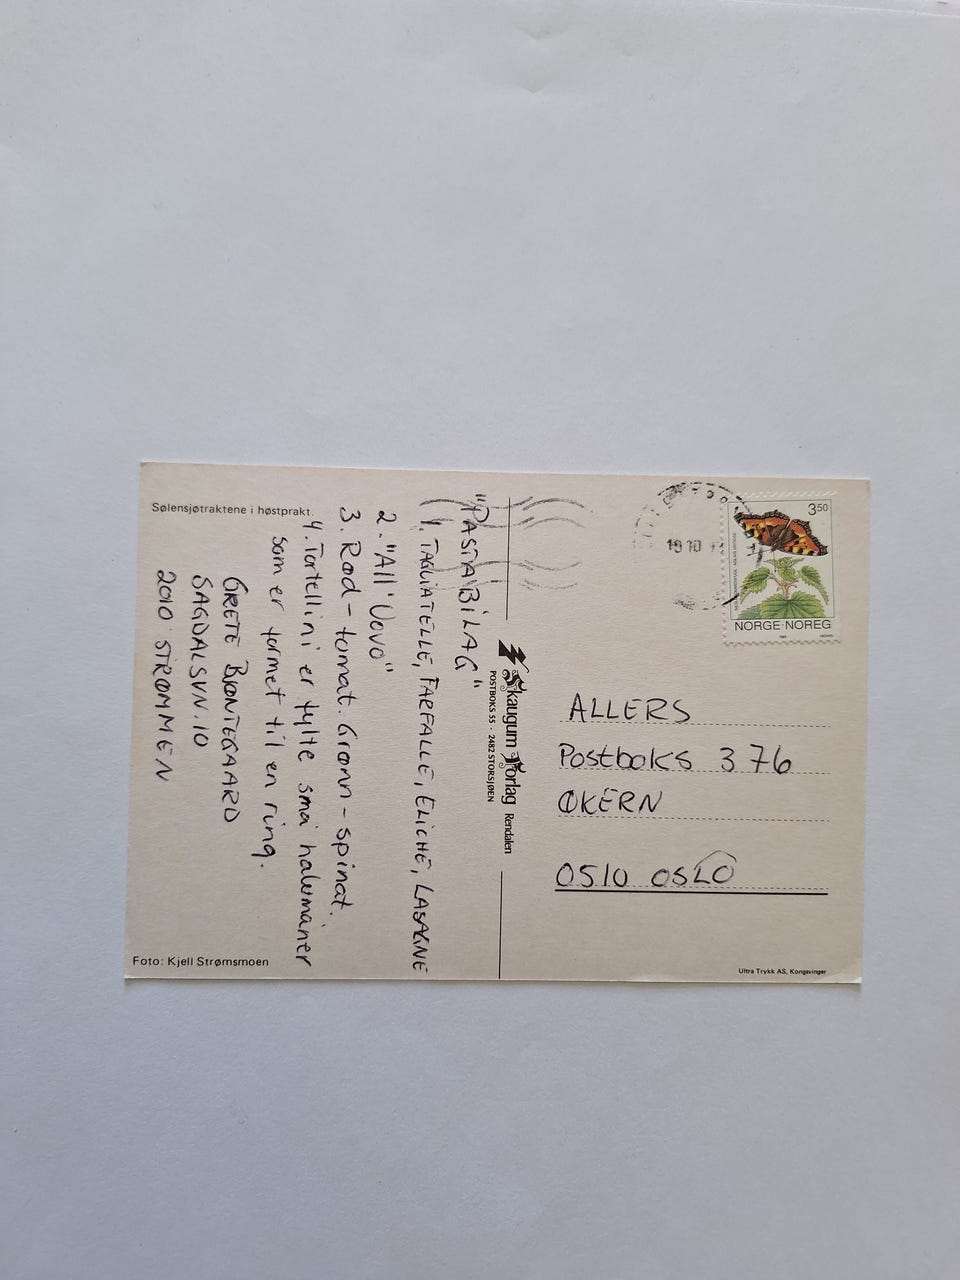 Sølensjøtraktene i høstprakt.
"PASTA BILAG"
1. TAGLIATELLE, FARFALLE, ELICHE, LASAGNE
2. "All' Uovo"
3. Rød - tomat. Grønn - spinat.
4. Tortellini er fylte små halvmåner
som er formet til en ring.
GRETE BRØNTEGAARD
SAGDALSVN. 10
2010 STRØMMEN
Foto: Kjell Strømsmoen
Skaugum Forlag Rendalen
POSTBOKS 55 - 2482 STORSJØEN
19 10
3 50
NORGE·NOREG
ALLERS
Postboks 376
ØKERN
0510 OSLO
Ultra Trykk AS, Kongsvinger